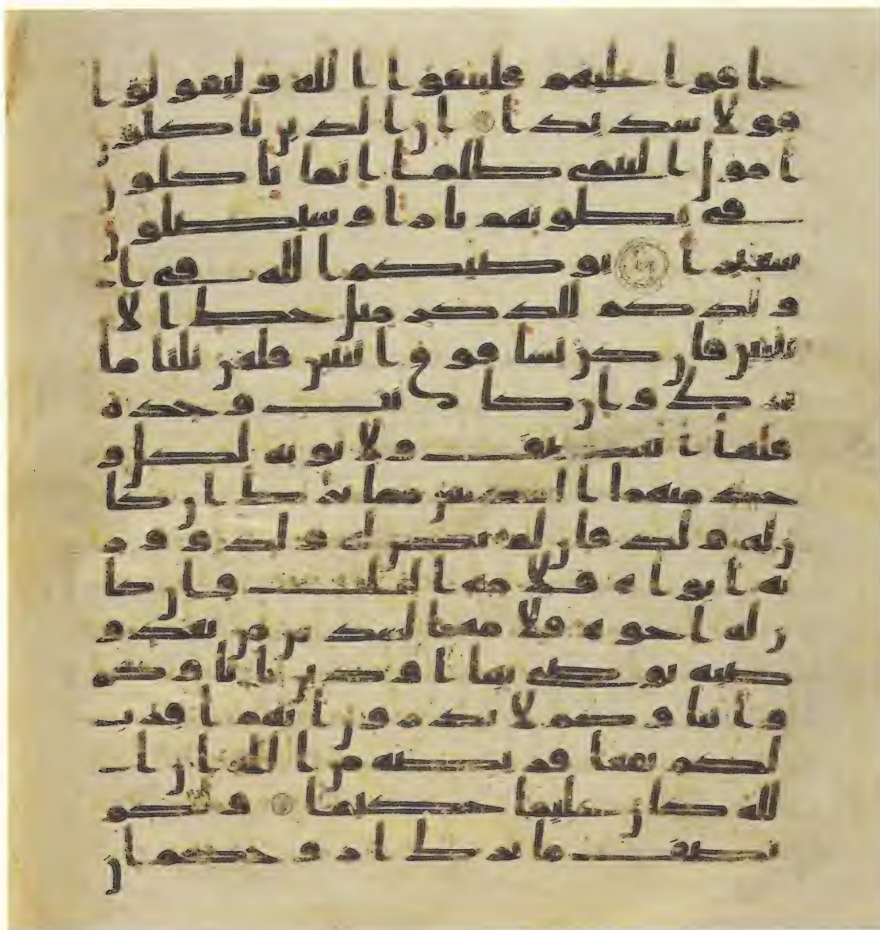 خافوا عليهم فليتقوا الله وليقولوا
قولا سديدا ان الذين ياكلون
امول اليتمى ظلما انما ياكلون
في بطونهم نارا وسيصلون
سعيرا يوصيكم الله في ا
ولدكم للذكر مثل حظ الا
نثيين فان كن نسا فوق اثنتين فلهن ثلثا ما
ترك وان كانت وحدة
فلها النصف ولابويه لكل و
حد منهما السدس مما ترك ان كا
ن له ولد فان لم يكن له ولد وور
ثه ابواه فلامه الثلث فان كا
ن له اخوة فلامه السدس من بعد و
صية يوصي بها او دين اباوكم
وابناوكم لا تدرون ايهم اقرب
لكم نفعا فريضة من الله ان ا
لله كان عليما حكيما ولكم
نصف ما ترك ازوجكم ان